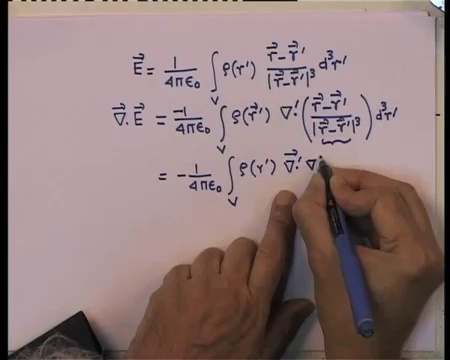 E⃗ = 1/4πϵ₀ ∫_V ρ(r') (r⃗ - r⃗')/|r⃗ - r⃗'|³ d³r'
∇⃗.E⃗ = -1/4πϵ₀ ∫_V ρ(r⃗') ∇.' ( (r⃗ - r⃗')/|r⃗ - r⃗'|³ ) d³r'
= -1/4πϵ₀ ∫_V ρ(r') ∇⃗.' ∇'